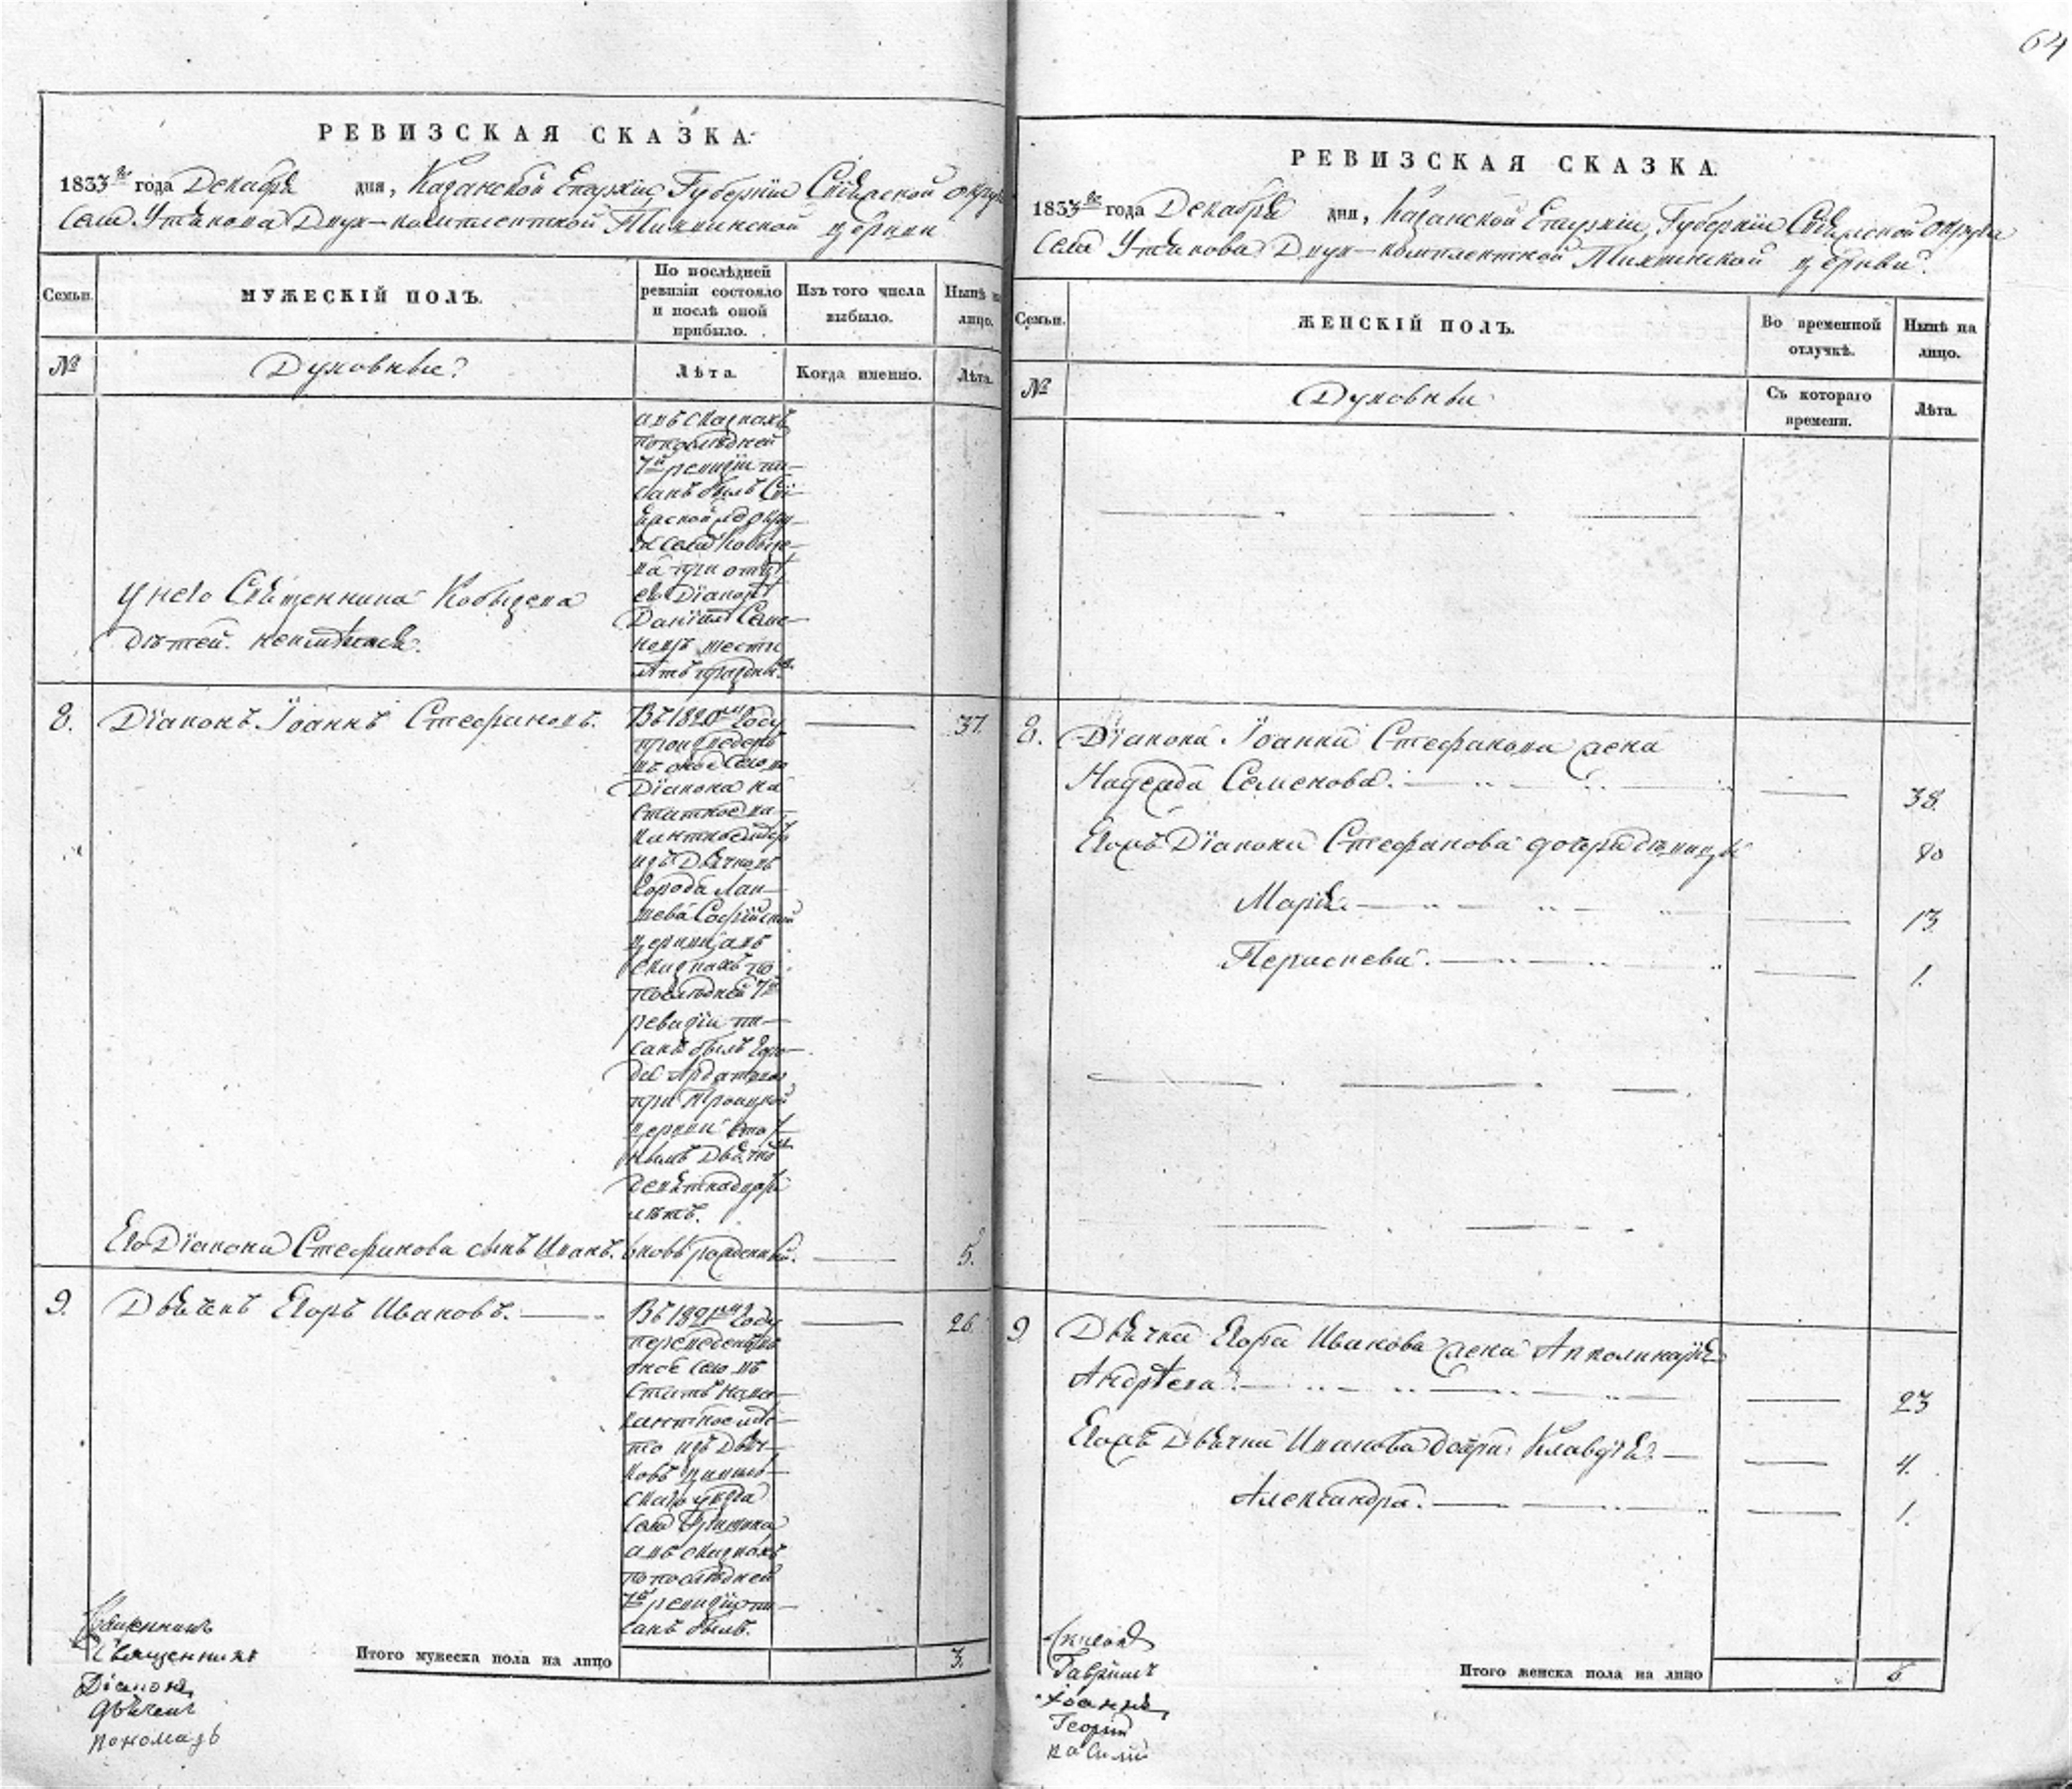 64
РЕВИЗСКАЯ СКАЗКА.
1833го года Декабря дня, Казанской Епархіи, Губерніи Свіяжской округи
Села Утякова Двух-комплектной Тихвинской церкви
Семьи.
МУЖЕСКІЙ ПОЛЪ.
По послѣдней
ревизіи состояло
и послѣ оной
прибыло.
Изъ того числа
выбыло.
Нынѣ на
лицо.
№
Духовные
Лѣта.
Когда именно.
Лѣта.
а въ сказкахъ
по послѣдней
7й ревизіи пи-
санъ былъ Сві-
яжской же окру-
ги села Кобызе-
ва при отцѣ
его Діаконѣ
Даніилѣ Семе-
новѣ шести
лѣтъ
У него Священника Кобызева
дѣтей неимѣлось.
8.
Діаконъ Іоаннъ Стефановъ.
37.
Въ 1820м году
произведенъ
въ оное село во
Діакона на
статное ва-
кантное мѣсто
изъ Дьячковъ
города Лаи-
шева Софійской
церкви, а въ
сказкахъ по
послѣдней 7й
ревизіи пи-
санъ былъ горо-
да Ардатова
при Троицкой
церкви
Дьячко
девятнадцати
лѣтъ.
Его Діакона Стефанова сынъ Иванъ.
вновь рожденный.
5.
9.
Дьячекъ Егоръ Ивановъ.
26.
Въ 1821м году
переведенъ въ
оное село на
статное вака-
кантное мѣс-
то изъ Дьяч-
ковъ
скаго уѣзда
села
а въ сказкахъ
по послѣдней
7й ревизіи пи-
санъ былъ.
Итого мужеска пола на лицо
3.
Священникъ
Священникъ
Діаконъ
Дьячекъ
пономарь
РЕВИЗСКАЯ СКАЗКА.
1833го года Декабря дня, Казанской Епархіи, Губерніи Свіяжской округи
Села Утякова Двух-комплектной Тихвинской церкви.
Семьи.
ЖЕНСКІЙ ПОЛЪ.
Во временной
отлучкѣ.
Нынѣ на
лицо.
№
Духовны
Съ котораго
времени.
Лѣта.
8.
Діакона Іоанна Стефанова жена
Надежда Семенова.
38.
Егожъ Діакона Стефанова дочери дѣвицы
Марія.
13.
Параскева.
1.
9
Дьячка Егора Иванова жена Апполинарія
Андрѣева.
23
Егожъ Дьячка Иванова дочри: Клавдія.
4.
Александра.
1.
Итого женска пола на лицо
6
Гавріилъ
Іоаннъ
Георгій
Василій